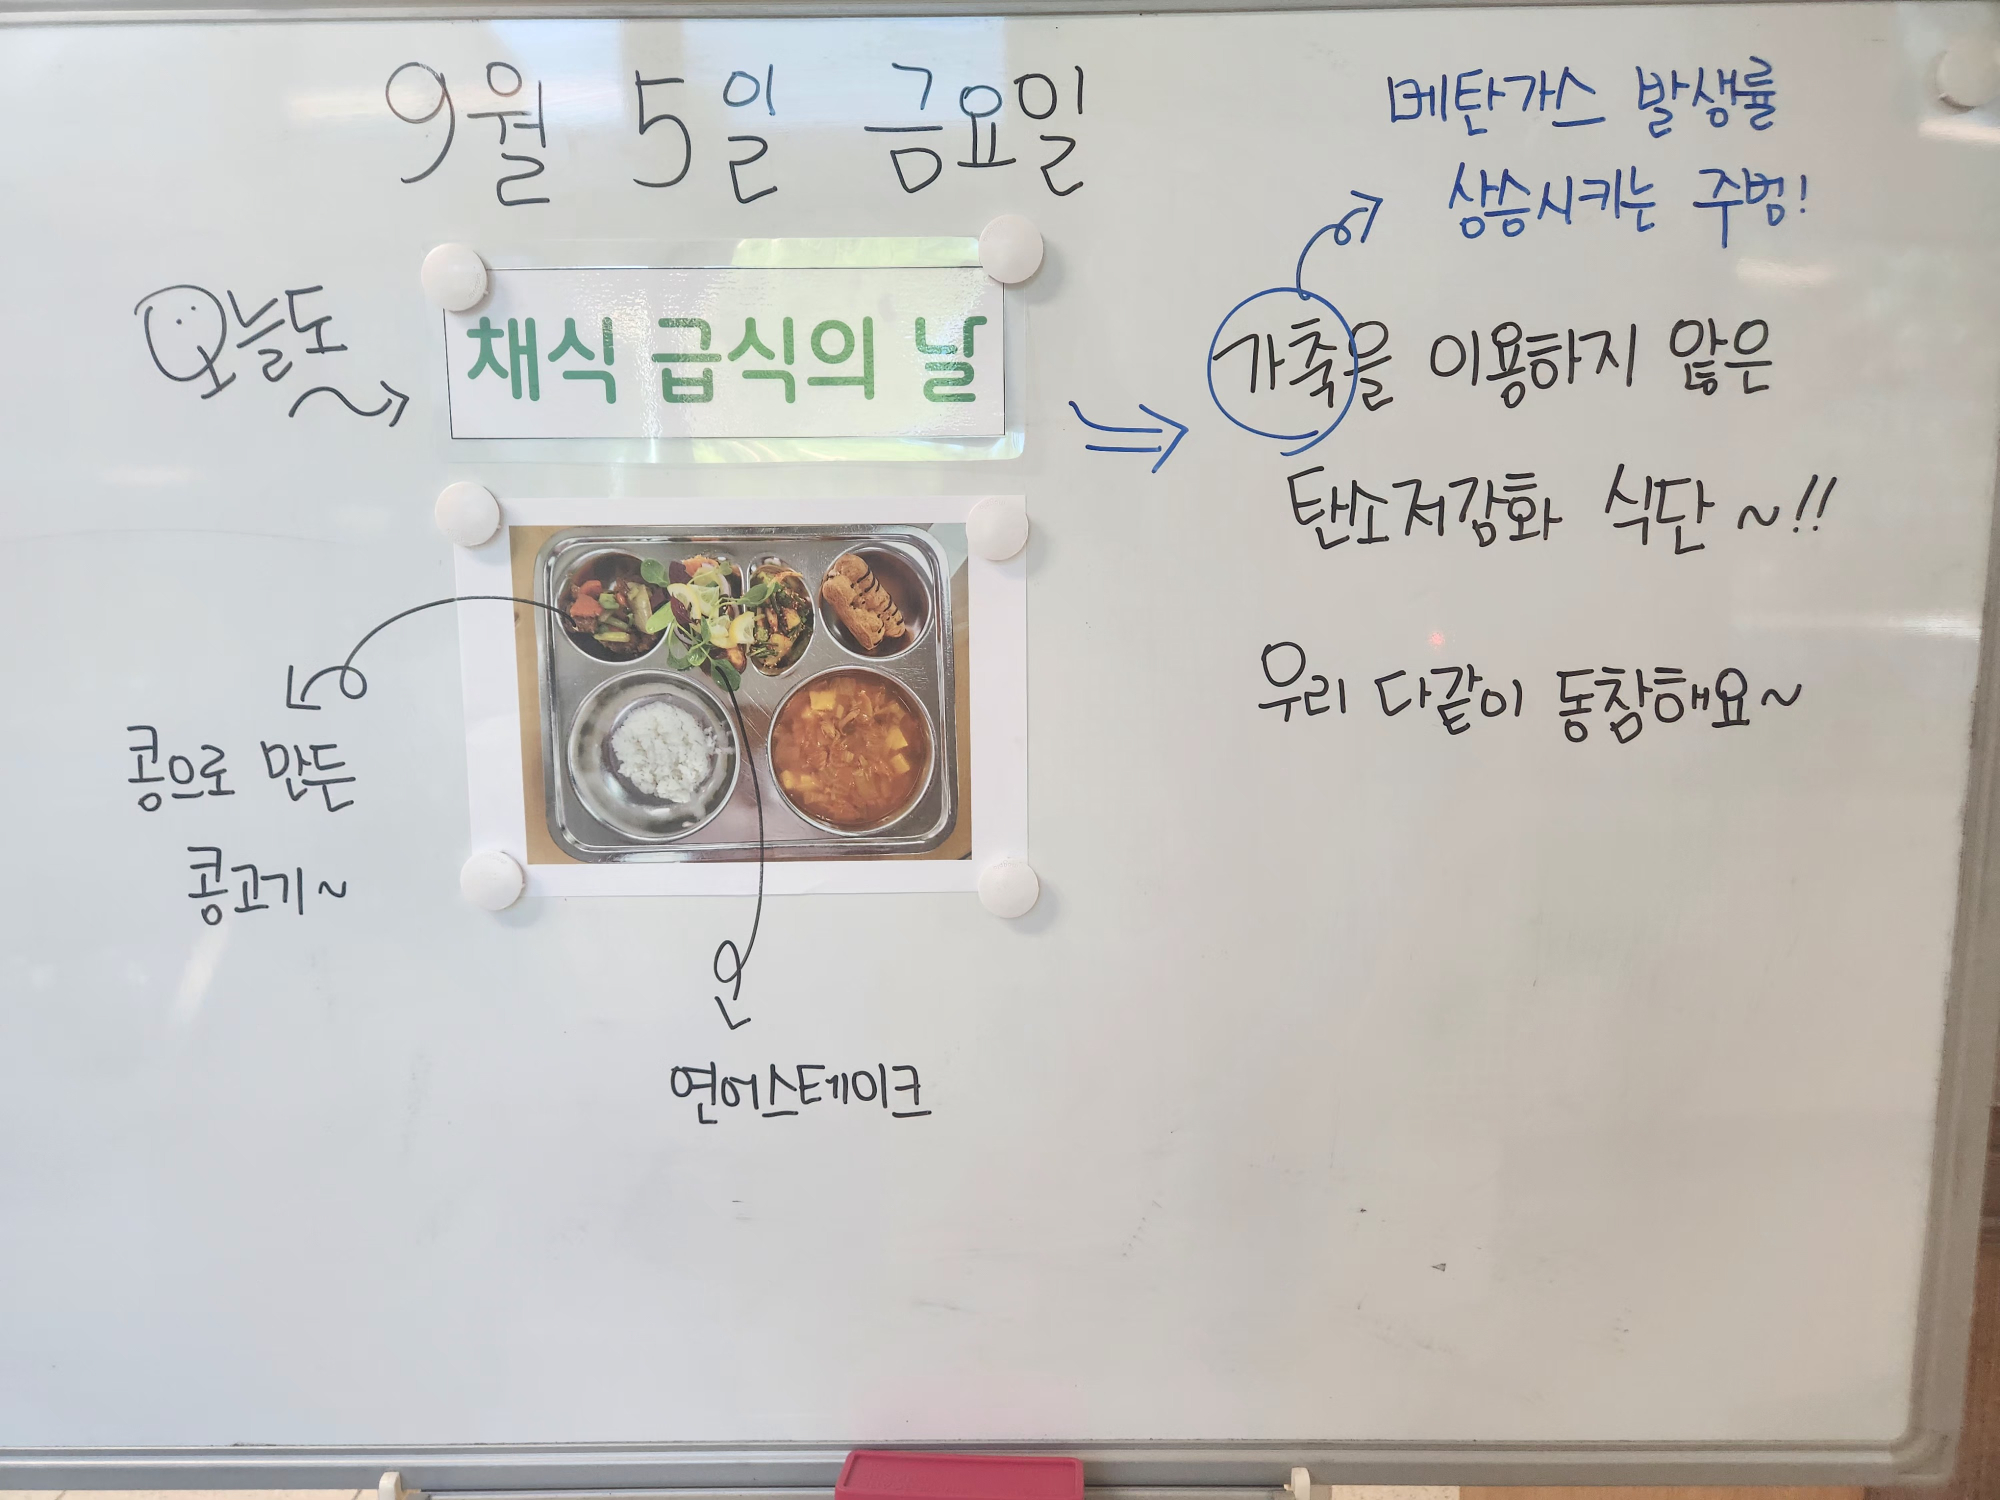 9월 5일 금요일
오늘도
채식 급식의 날
메탄가스 발생률
상승시키는 주범!
가축을 이용하지 않은
탄소저감화 식단~!!
우리 다같이 동참해요~
콩으로 만든
콩고기~
연어스테이크